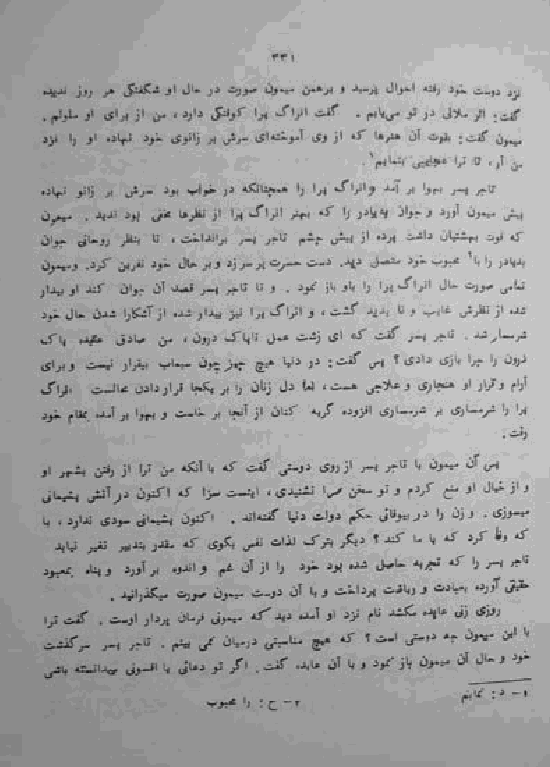 ۳۳۱
نزد دوست خود رفته احوال پرسید و برهمن میمون صورت در حال او شگفتگی هر روز ندیده
گفت: اثر ملالی در تو می‌یابم. گفت انراگ پرا کوفتگی دارد، من از برای او ملولم.
میمون گفت: بقوت آن هنرها که از وی آموخته‌ای سرش بر زانوی خود نهاده او را نزد
من آر، تا ترا عجایبی بنمایم۱.
تاجر پسر بهوا بر آمد و انراگ پرا را همچنانکه در خواب بود سرش بر زانو نهاده
پیش میمون آورد و جوان پدیادر را که بهنر انراگ پرا از نظرها مخفی بود ندید. میمون
که قوت بهشتیان داشت پرده از پیش چشم تاجر پسر برانداخت، تا بنظر روحانی جوان
پدیادر را با۲ محبوب خود متصل دید. دست حسرت بر سر زد و بر حال خود نفرین کرد. ومیمون
تمامی صورت حال انراگ پرا را باو باز نمود. و تا تاجر پسر قصد آن جوان کند او بیدار
شده از نظرش غایب و نا پدید گشت، و انراگ پرا نیز بیدار شده از آشکارا شدن حال خود
شرمسار شد. تاجر پسر گفت که ای زشت عمل ناپاک درون، من صادق عقیده پاک
درون را چرا بازی دادی؟ پس گفت: در دنیا هیچ چیز چون سیماب بیقرار نیست و برای
آرام و قرار او هنجاری و علاجی هست، اما دل زنان را بر یکجا قرار دادن محالست انراگ
پرا را شرمساری بر شرمساری افزوده گریه کنان از آنجا بر خاست و بهوا بر آمده بمقام خود
رفت.
پس آن میمون با تاجر پسر از روی دوستی گفت که با آنکه من ترا از رفتن بشهر او
و از خیال او منع کردم و تو سخن مرا نشنیدی، اینست سزا که اکنون در آتش پشیمانی
میسوزی. و زن را در بیوفائی حکم دولت دنیا گفته‌اند. اکنون پشیمانی سودی ندارد، با
که وفا کرد که با ما کند؟ دیگر بترک لذات نفس بکوی که مقدر بتدبیر تغیر نیابد
تاجر پسر را که تجربه حاصل شده بود خود را از آن غم و اندوه بر آورد و پناه بمعبود
حقیقی آورده بعبادت و ریاضت پرداخت و با آن دوست میمون صورت میگذرانید.
روزی زنی عابده نام نزد او آمده دید که میمونی فرمان پردار اوست. گفت ترا
با این میمون چه دوستی است؟ که هیچ مناسبتی درمیان نمی بینم. تاجر پسر سرگذشت
خود و حال آن میمون باز نمود و با آن عابده گفت. اگر تو دعائی یا افسونی میدانسته باشی
۱- د: نمایم
۲- ح: را محبوب